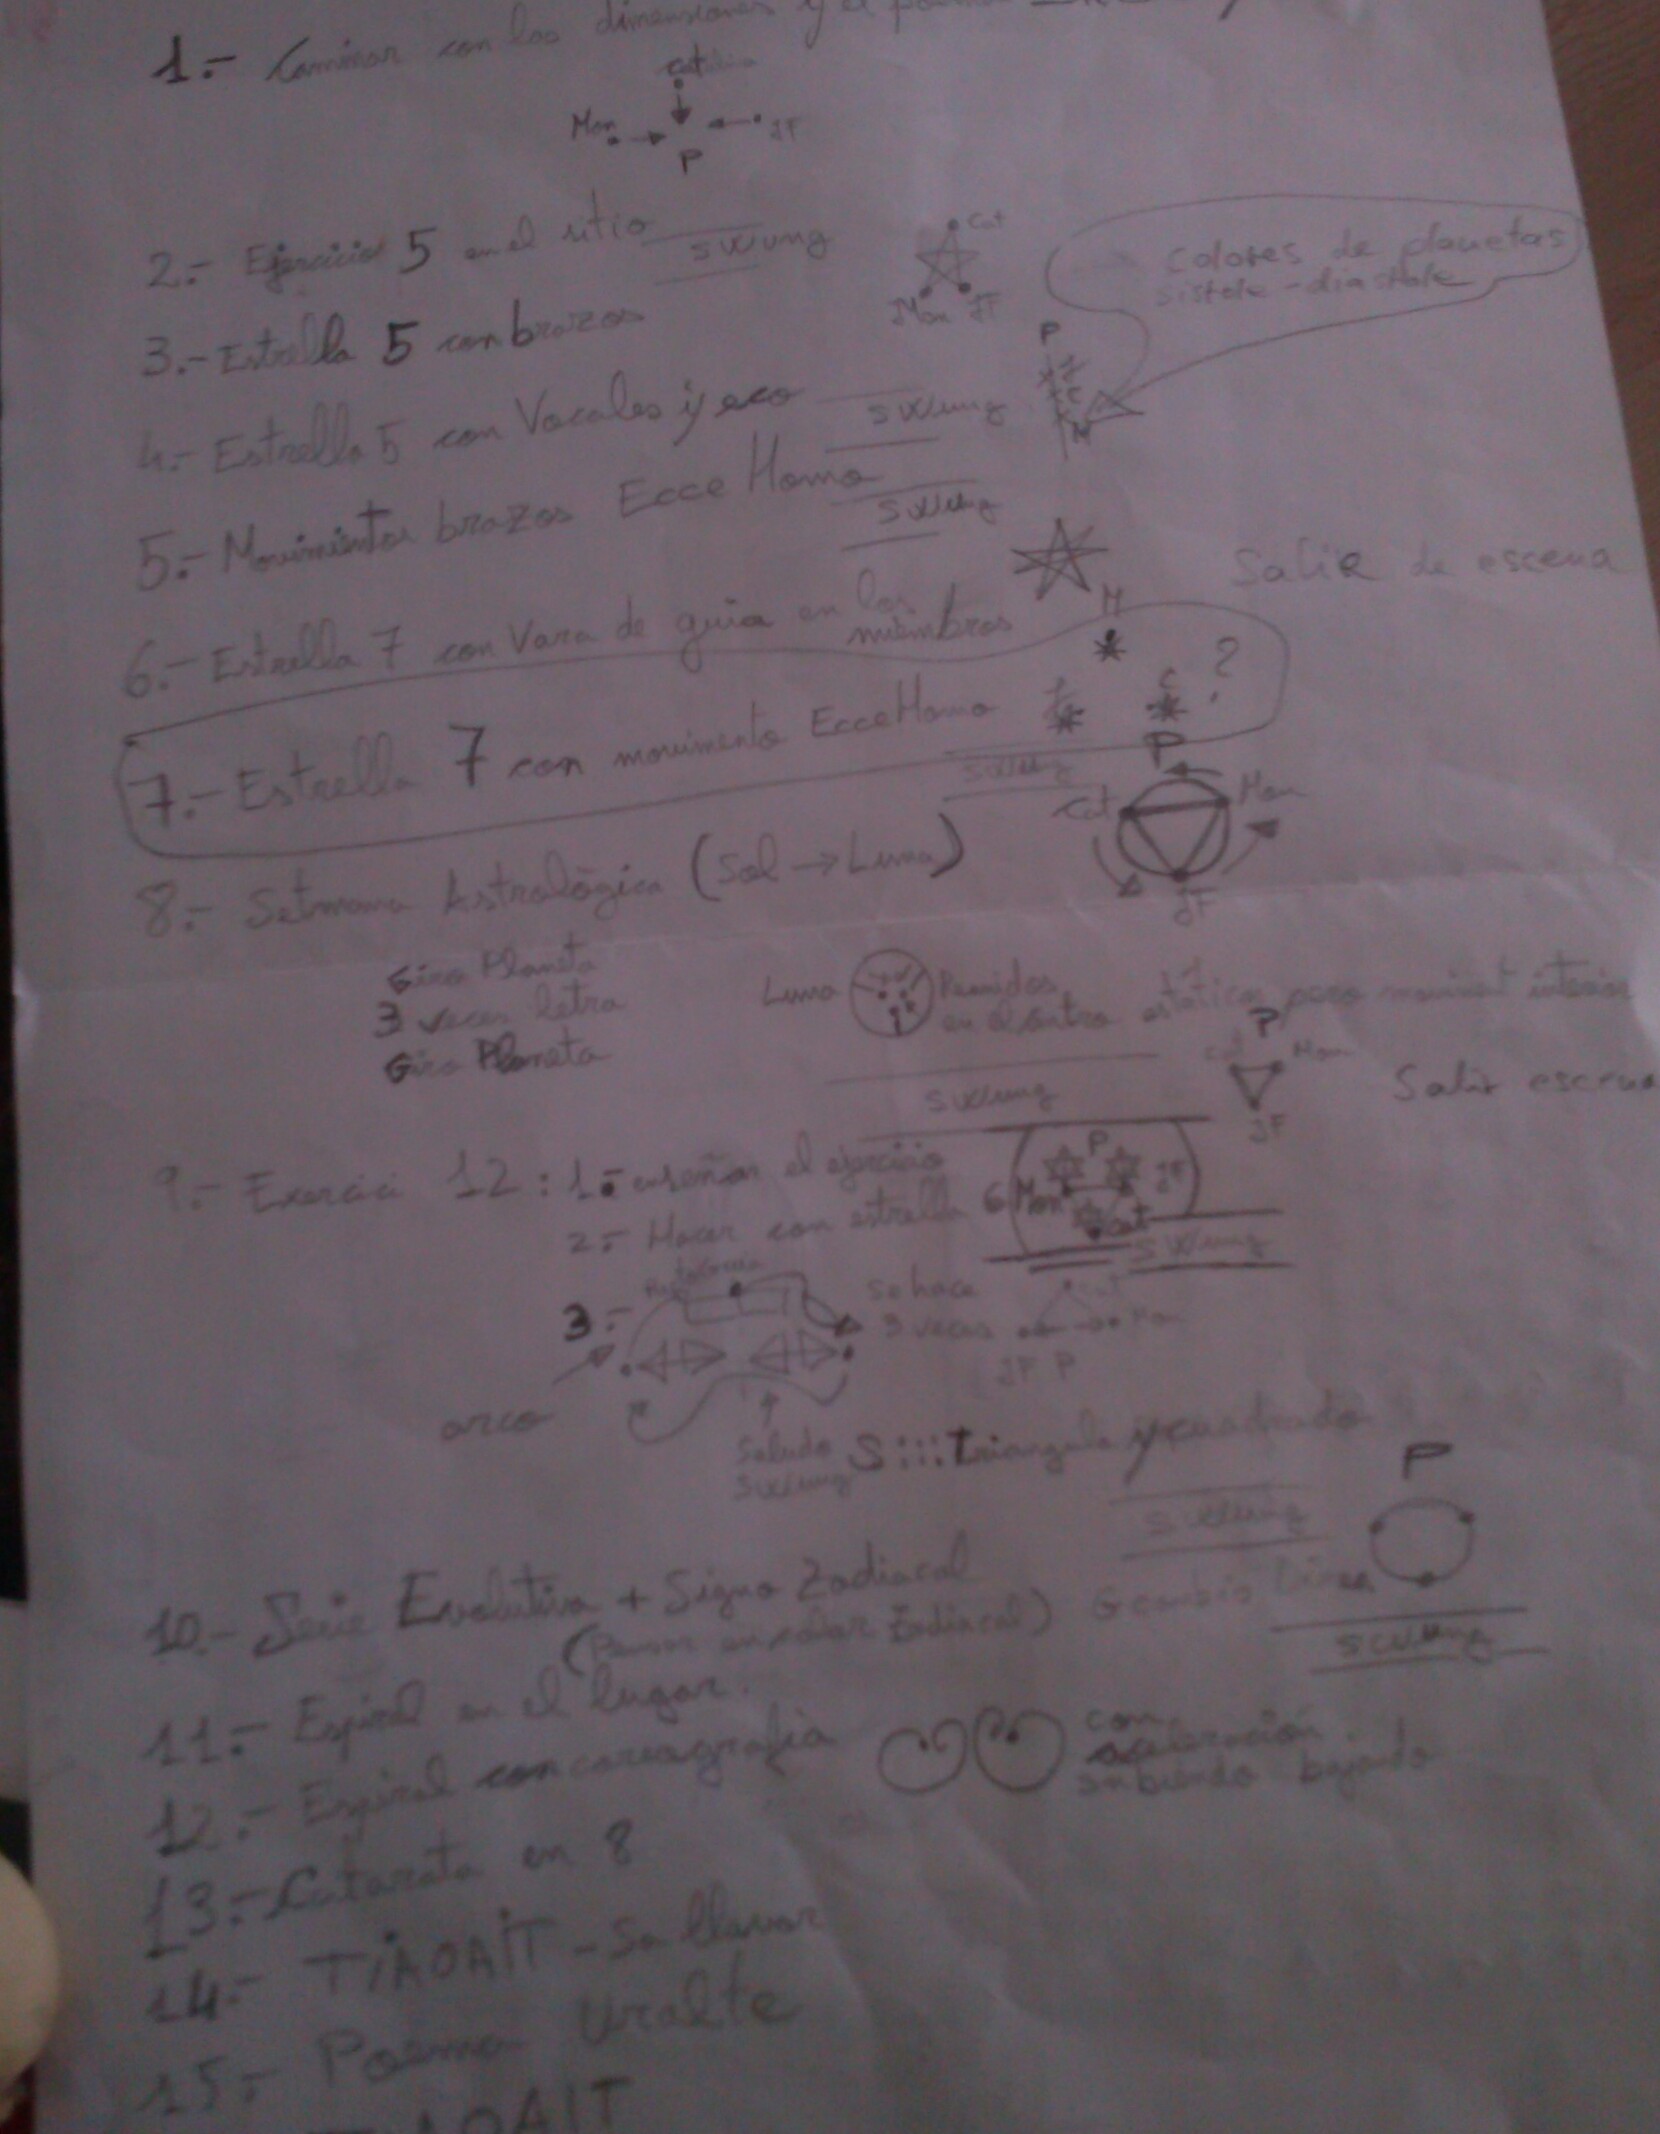 1.- Caminar con las dimensiones y el poema
Catalina
Mon JF
P
2.- Ejercicio 5 en el sitio
swung
Cat
Mon JF
colores de planetas
sistole - diastole
3.- Estrella 5 con brazos
P
M
4.- Estrella 5 con Vocales y eco
swung
5.- Movimientos brazos Ecce Homo
swung
Salir de escena
6.- Estrella 7 con Vara de guia en los
miembros
M
C
?
7.- Estrella 7 con movimento Ecce Homo
swung
P
Cat Mon
JF
8.- Setmana Astrològica (Sol → Luna)
Giro Planeta
3 veces letra
Giro Planeta
Luna
Reunidos
en el centro estática pero moviment interior
P
Cat Mon
JF
Salir escena
swung
9.- Exercici 12 : 1.- enseñar el ejercicio
2.- Hacer con estrella 6
P
Mon JF
Cat
swung
3.-
se hace
3 veces
Cat
Mon
JF P
arco
Saludo
swung
S:::triangulo y cuadrado
swung
P
10.- Serie Evolutiva + Signo Zodiacal
(Pensar en color Zodiacal)
swung
11.- Espiral en el lugar.
12.- Espiral con coreografia
con
aceleración
subiendo bajando
13.- Catarata en 8
14.- TIAOAIT -
15.- Poema Uralte
TIAOAIT